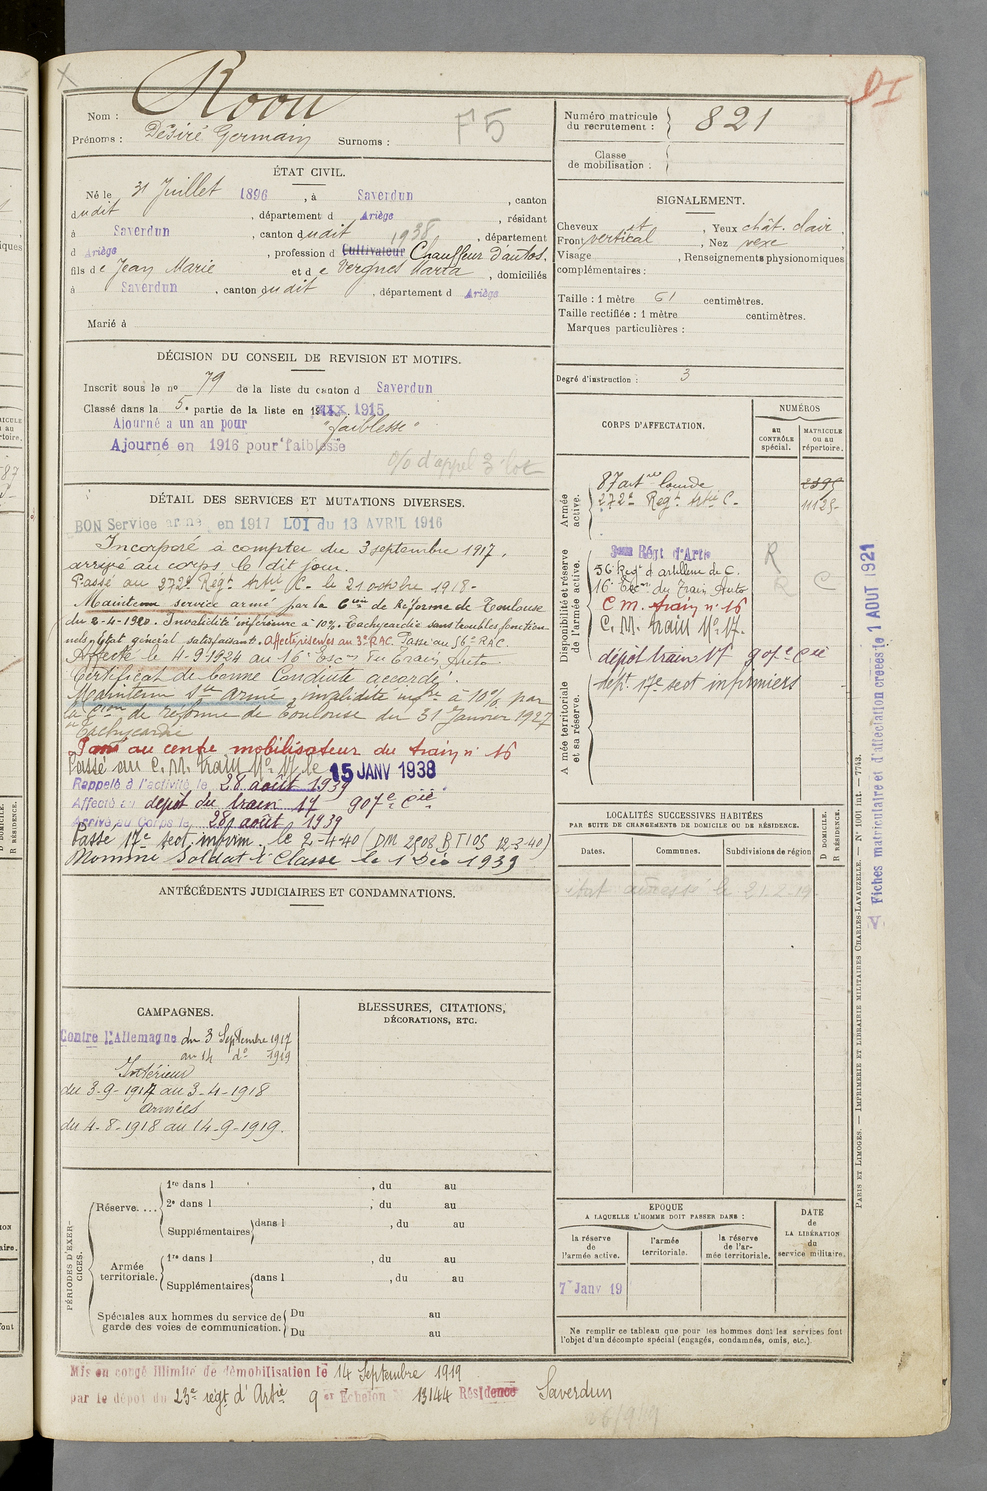 Nom : Roou
Prénoms : Désiré Germain Surnoms :
F5
ÉTAT CIVIL.
Né le 31 Juillet 1896, à Saverdun, canton
dudit, département d Ariège, résidant
à Saverdun, canton dudit 1938, département
d Ariège, profession d Cultivateur Chauffeur d'autos.
fils de Jean Marie et de Vergnes Marta, domiciliés
à Saverdun, canton dudit, département d Ariège
Marié à
DÉCISION DU CONSEIL DE REVISION ET MOTIFS.
Inscrit sous le no 79 de la liste du canton d Saverdun
Classé dans la 5e partie de la liste en 1915
Ajourné a un an pour "faiblesse"
Ajourné en 1916 pour faiblesse
DÉTAIL DES SERVICES ET MUTATIONS DIVERSES.
BON Service armé, en 1917 LOI du 13 AVRIL 1916
Incorporé à compter du 3 septembre 1917.
arrivé au corps le dit jour.
Passé au 272e Regt Artie C. le 21 octobre 1918.
Maintenu service armé par la Con de Réforme de Toulouse
du 2-4-1920. Invalidité inférieure à 10%. Tachycardie sans troubles fonction-
nels. Etat général satisfaisant. Affecté réserves au 3e RAC. Passé au 56e RAC.
Affecté le 1-9-1924 au 16e Escon du Train Auto
Certificat de bonne Conduite accordé.
Maintenu Sce Armé, invalidité infre à 10% par
la Con de réforme de Toulouse du 31 Janvier 1927
Tachycardie
Passé au centre mobilisateur du train no 16
Passé au C. M. train No 17 le 15 JANV 1938
Rappelé à l'activité le 28 août 1939
Affecté au dépôt du train 17 907e Cie
Arrivé au Corps le 28 août 1939
Passé 17e sect. infirm. le 2-4-40 (DM 2508 BT105 12-3-40)
Nommé Soldat 1e Classe le 1 Déc 1939
ANTÉCÉDENTS JUDICIAIRES ET CONDAMNATIONS.
CAMPAGNES.
Contre l'Allemagne du 3 Septembre 1917
au 14 do 1919
Intérieur
du 3-9-1917 au 3-4-1918
armées
du 4-8-1918 au 14-9-1919.
BLESSURES, CITATIONS,
DÉCORATIONS, ETC.
PÉRIODES D'EXERCICES.
Réserve....
1re dans l , du au
2e dans l , du au
Supplémentaires dans l , du au
Armée territoriale.
1re dans l , du au
Supplémentaires dans l , du au
Spéciales aux hommes du service de garde des voies de communication.
Du au
Du au
Mis en congé illimité de démobilisation le 14 Septembre 1919
par le dépôt du 23e régt d'Artie 9e Echelon 13144 Résidence Saverdun
26/9/19
Numéro matricule du recrutement : 821
Classe de mobilisation :
SIGNALEMENT.
Cheveux , Yeux chât. clair,
Front vertical, Nez vexe,
Visage , Renseignements physionomiques
complémentaires :
Taille : 1 mètre 61 centimètres.
Taille rectifiée : 1 mètre centimètres.
Marques particulières :
Degré d'instruction : 3
CORPS D'AFFECTATION.
NUMÉROS
au CONTRÔLE spécial.
MATRICULE ou au répertoire.
Armée active.
87 artie lourde 2395
272e Regt Artie C. 11125
Disponibilité et réserve de l'armée active.
Régt d'Artie R
56 Regt d'artillerie de C.
16 Escon du Train Auto R C
C. M. train no 16
C. M. train No 17.
dépôt train 17 907e Cie
Armée territoriale et sa réserve.
dépt. 17e sect infirmiers
LOCALITÉS SUCCESSIVES HABITÉES
PAR SUITE DE CHANGEMENTS DE DOMICILE OU DE RÉSIDENCE.
Dates. Communes. Subdivisions de région
D DOMICILE. R RÉSIDENCE.
le 21-2-19
EPOQUE
A LAQUELLE L'HOMME DOIT PASSER DANS :
la réserve de l'armée active.
l'armée territoriale.
la réserve de l'armée territoriale.
DATE de LA LIBÉRATION du service militaire.
7 Janv 19
Ne remplir ce tableau que pour les hommes dont les services font
l'objet d'un décompte spécial (engagés, condamnés, omis, etc.).
PARIS ET LIMOGES. — IMPRIMERIE ET LIBRAIRIE MILITAIRES CHARLES-LAVAUZELLE. — N° 1001 int. — 7743.
V Fiches matriculaire et d'affectation créées le 1 AOUT 1921